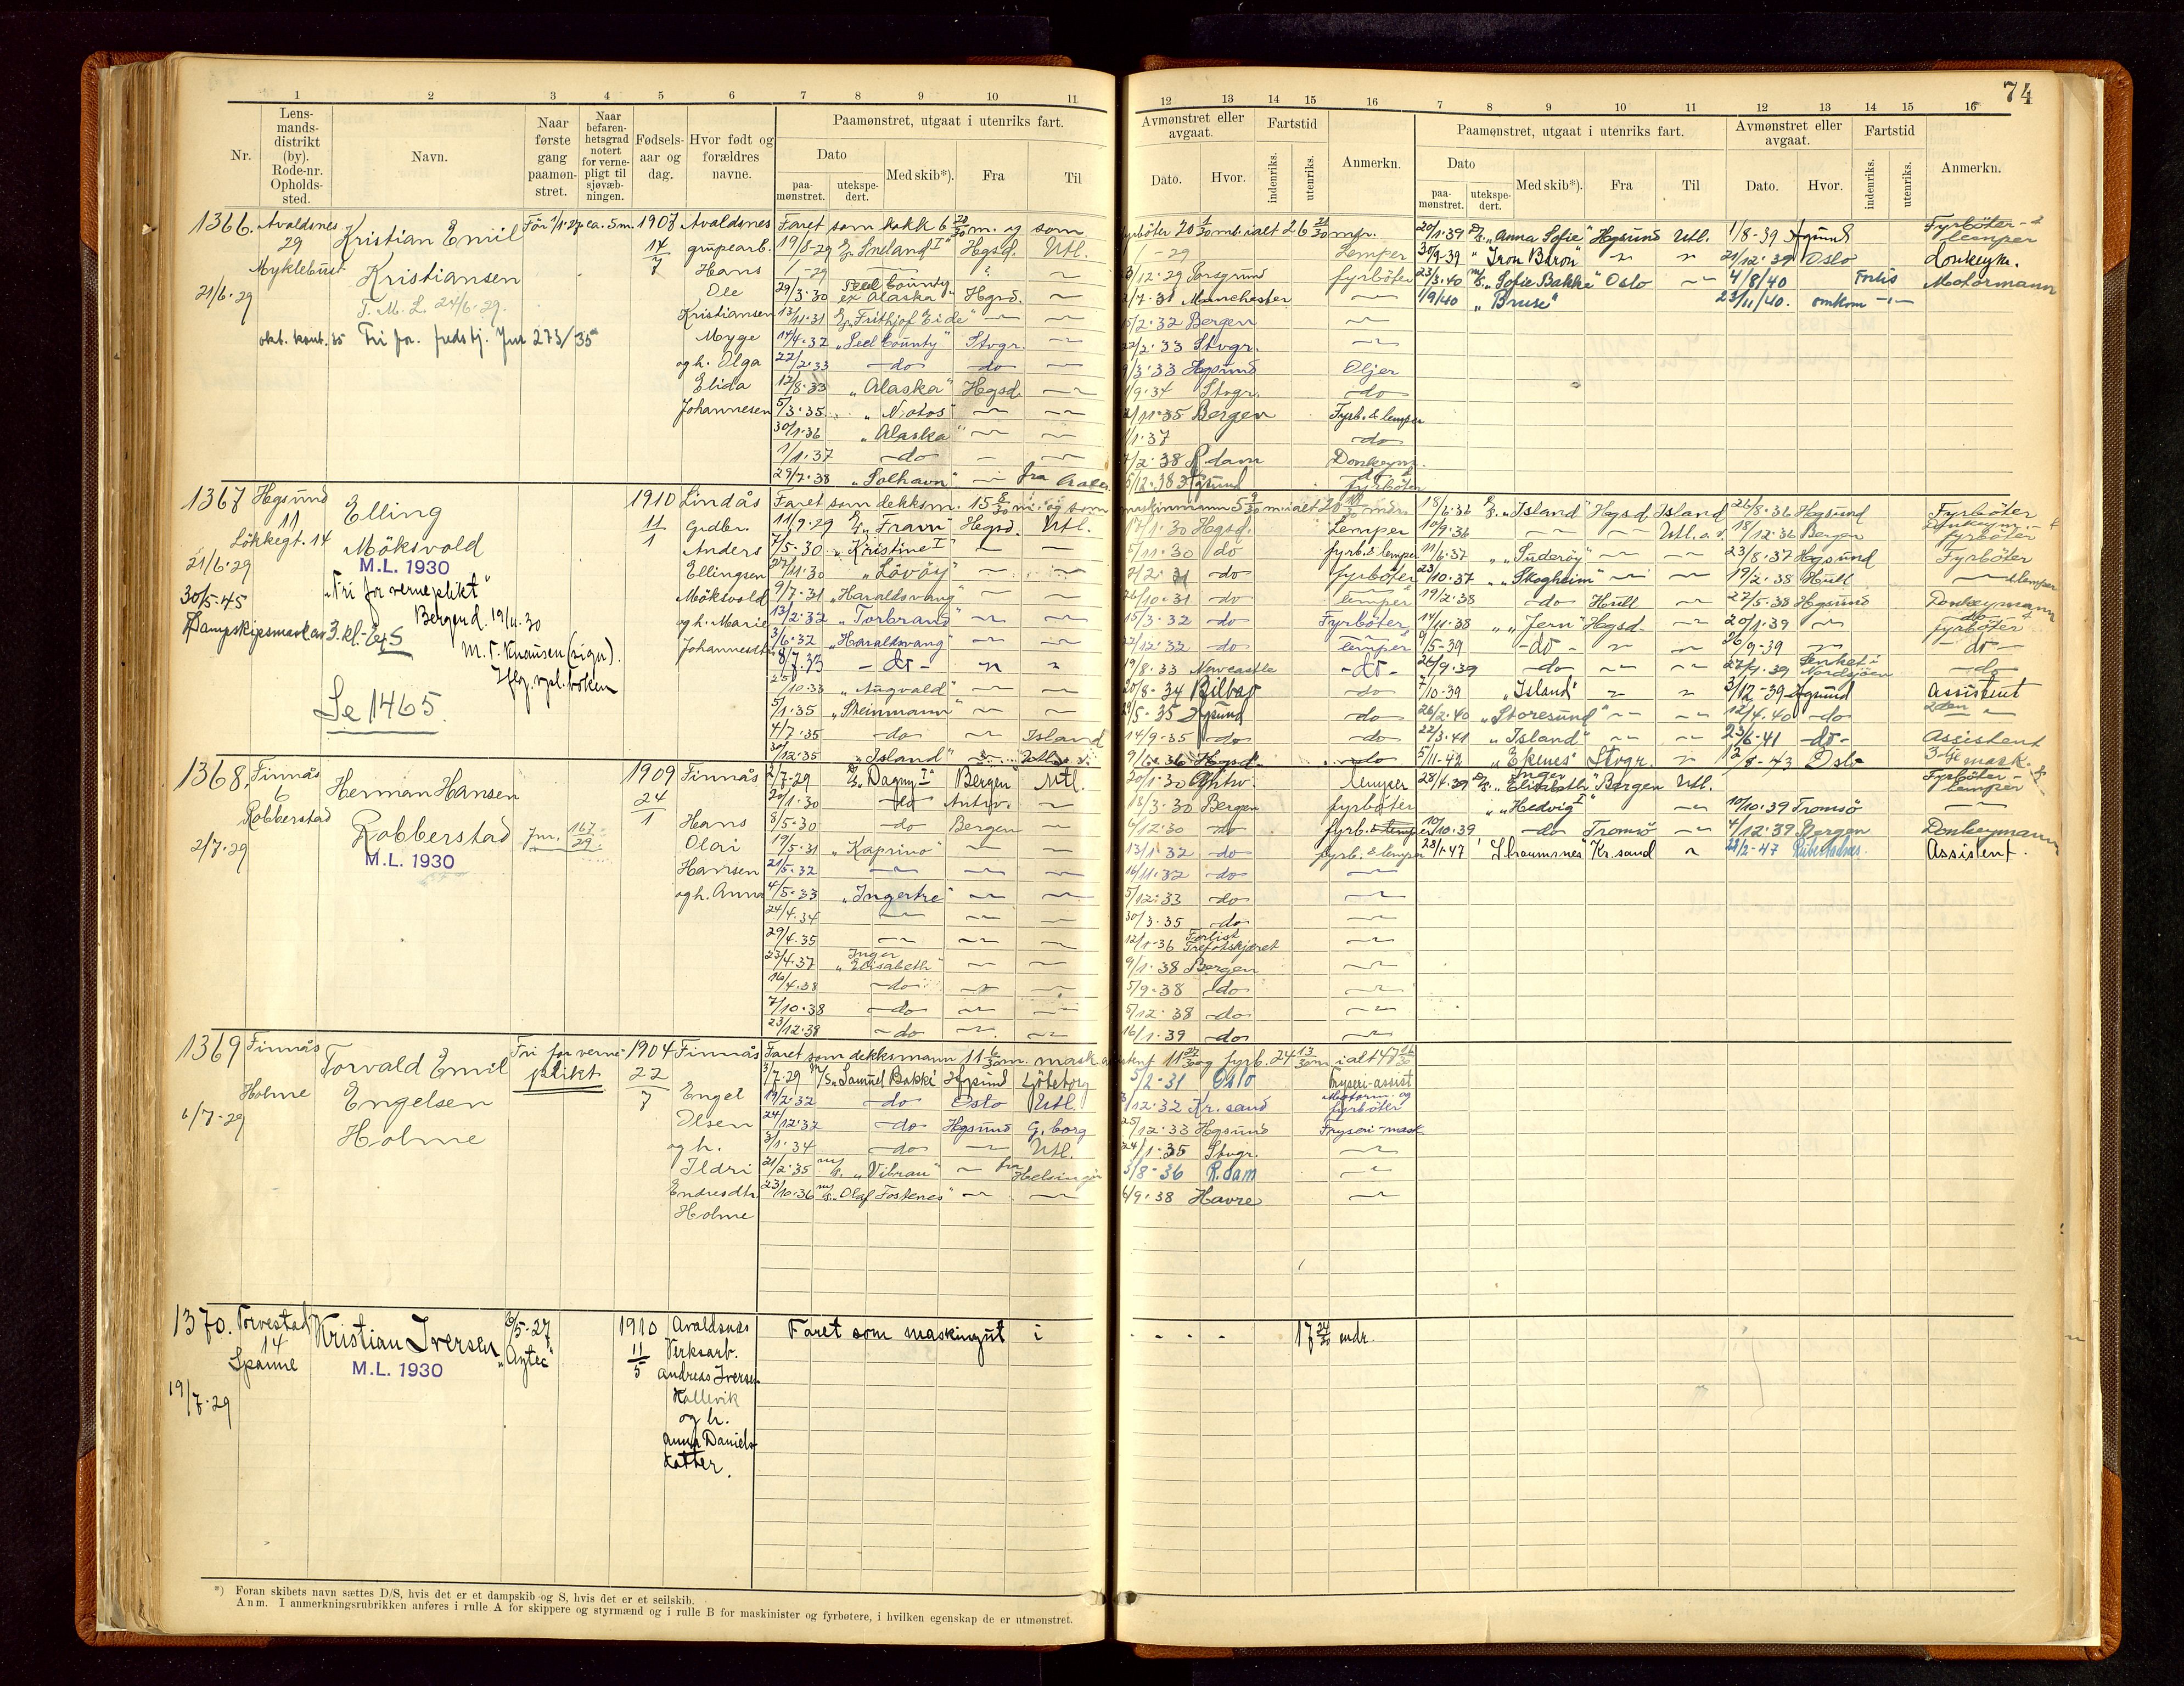 74
1 2 3 4 5 6 7 8 9 10 11
Nr.
Lens-
mands-
distrikt
(by).
Rode-nr.
Opholds-
sted.
Navn.
Naar
første
gang
paamøn-
stret.
Naar
befaren-
hetsgrad
notert
for verne-
pligt til
sjøvæb-
ningen.
Fødsels-
aar og
dag.
Hvor født og
forældres
navne.
Paamønstret, utgaat i utenriks fart.
Dato
paa-
mønstret.
utekspe-
dert.
Med skib*).
Fra
Til
12 13 14 15 16 7 8 9 10 11 12 13 14 15 16
Avmønstret eller
avgaat.
Dato.
Hvor.
Fartstid
indenriks.
utenriks.
Anmerkn.
Paamønstret, utgaat i utenriks fart.
Dato
paa-
mønstret.
utekspe-
dert.
Med skib*).
Fra
Til
Avmønstret eller
avgaat.
Dato.
Hvor.
Fartstid
indenriks.
utenriks.
Anmerkn.
1366. Avaldsnes
29
Myklebust
21/6-29
Kristian Emil
Kristiansen
T.M.L. 24/6-29.
Før 1/1-27 ca. 5 m.
1907
14/7
Avaldsnes
grupearb.
Hans
Ole
Kristiansen
Myge
og h. Olga
Elida
Johannesen
Faret som kokk 6 20/30 m. og som
19/8-29 "Sneland I" Hgsd. Utl.
29/3.30 "Peel County ex Alaska" Hgsd. —
13/11.31 "Frithjof Eide" — —
14/4.32 "Peel County" Stvgr. —
22/2.33 do do —
12/8.33 "Alaska" Hgsd. —
5/3.35 "Notos" — —
30/1.36 "Alaska" — —
1/1.37 do — —
29/7.38 "Solhavn" — fra
3/12.29 Porsgrund fyrbøter
2/7.31 Manchester —
15/2.32 Bergen —
22/2.33 Stvgr. —
9/3.33 Hgsund Oljer
1/9.34 Stvgr. do
2/11.35 Bergen Fyrb. & lemper
1/1.37 do
7/2.38 R.dam Donkeym.
5/12.38 Hgsund fyrbøter
20/1.39 "Anna Sofie" Hgsund Utl. 1/8-39 Hgsund Fyrbøter- & lemper
30/9-39 "Iron Baron" — — 21/12.39 Oslo donkeym.
23/3.40 "Sofie Bakke" Oslo — 4/8/40 Forlis Motormann
1/9/40 "Bruse" 23/11/40. omkom —
1367 Hgsund
11
Løkkegt. 14
21/6-29
30/5-45
Elling
Møksvold
M.L. 1930
"Fri for verneplikt"
Bergen d. 19/11.30
M.T. Knausen (sign).
Iflg. vpl. boken
Se 1465.
1910
11/1
Lindås
Grdbr.
Anders
Ellingsen
Møksvold
og h. Marie
Johannesdtr
Faret som dekksm. 15 8/30 m. og som
11/9.29 "Fram" Hgsd. Utl.
7/5.30 "Kristine I" — —
27/11.30 "Løvøy" — —
9/7.31 "Haraldsvang" — —
13/2.32 "Torbrand" — —
3/6.32 "Haraldsvang" — —
8/7.33 do — —
25/10.33 "Augvald" — —
5/1.35 "Steinmann" — —
4/7.35 do — Island
30/12.35 "Island" — Utl.
17/1.30 Hgsd. Lemper
5/11.30 do fyrb. & lemper
2/2.31 do fyrbøter
26/10.31 do lemper
15/3.32 do Fyrbøter
22/12.32 do lemper
19/8.33 Newcastle do
20/8-34 Bilbao do
29/5-35 Hgsund do
14/9-35 do do
9/6.36 Hgsd. do
18/6.36 "Island" Hgsd. Island 26/8.36 Hgsund Fyrbøter
10/9.36 — — Utl. 18/12.36 Bergen Donkeym. & fyrbøter
11/6.37 "Suderøy" — — 23/8.37 Hgsund Fyrbøter
23/10.37 "Skogheim" — — 19/2.38 Hull — & lemper
19/2.38 do Hull — 27/5.38 Hgsund Donkeymann
14/11.38 "Jern" Hgsd. — 20/1.39 — do & fyrbøter
9/5-39 do — — 26/9-39 — do
26/9.39 do — — 27/9.39 Senket i Nordsjøen do
7/10-39 "Island" — — 3/12-39 Hgsund Assistent
26/2.40 "Storesund" — — 12/4.40 do 2den —
22/3.41 "Island" — — 23/6-41 do Assistent
5/11-42 "Ekenes" Stvgr. — 12/8-43 Oslo 3-dje mask.
1368. Finnås
6
Robberstad
2/7.29
Herman Hansen
Robberstad
M.L. 1930
Jnr. 167/29
1909
24/1
Finnås
Hans
Olai
Hansen
og h. Anna
2/7-29 "Dagny I" Bergen Utl.
20/1.30 do Antw. —
8/5-30 do Bergen —
19/5.31 "Kaprino" — —
21/5-32 — — —
4/5-33 "Ingertre" — —
24/4.34 — — —
29/4.35 — — —
23/4.37 "Inger Elisabeth" — —
16/4.38 do — —
7/10.38 do — —
23/12.38 do — —
20/1.30 Antw. lemper
18/3.30 Bergen fyrbøter
6/12.30 do fyrb. & lemper
13/1.32 do fyrb. & lemper
16/11.32 do —
5/12.33 do —
30/3.35 do —
12/1-36 Forlist —
9/1.38 Bergen —
5/9-38 do —
5/12.38 do —
16/1.39 do —
28/4.39 "Inger Elisabeth" Bergen Utl. Fyrbøter- & lemper
"Hedvig I" — 10/10.39 Tromsø —
10/10.39 do Tromsø — 4/12.39 Bergen Donkeymann
28/1-47 "Straumsnes" Kr.sand — 28/2-47 Assistent.
1369 Finnås
Holme
6/7-29
Torvald Emil
Engelsen
Holme
Fri for verne-
plikt
1904
22/7
Finnås
Engel
Olsen
og h.
Ildri
Endresdtr
Holme
Faret som dekksmann 11 6/30 m. mask. assistent 11 27/30 og fyrb. 24 13/30 m ialt 47 16/30
3/7-29 M/S "Samuel Bakke" Hgsund Gøteborg 5/2-31 Oslo Fryseri-assist
19/2.32 do Oslo Utl. 3/12.32 Kr.sand Motorm. og fyrbøter
24/12.32 do Hgsund G.borg 25/12.33 Hgsund Fryseri-mask
3/1.34 do — Utl. 24/1-35 Stvgr. —
21/2.35 "Vibran" — fra Helsingør 3/8-36 R.dam —
23/10.36 "Olaf Fostenes" — — 6/9.38 Havre —
1370. Torvestad
14
Spanne
19/7-29
Kristian Iversen
M.L. 1930
6/5-27
"Aztec"
1910
11/5
Avaldsnes
Verksarb.
Andreas Iversen
Kallevik
og h.
Anna Daniels-
datter.
Faret som maskingut i - - - - 17 24/30 mdr.
*) Foran skibets navn sættes D/S, hvis det er et dampskib og S, hvis det er et seilskib.
Anm. I anmerkningsrubrikken anføres i rulle A for skippere og styrmænd og i rulle B for maskinister og fyrbøtere, i hvilken egenskap de er utmønstret.